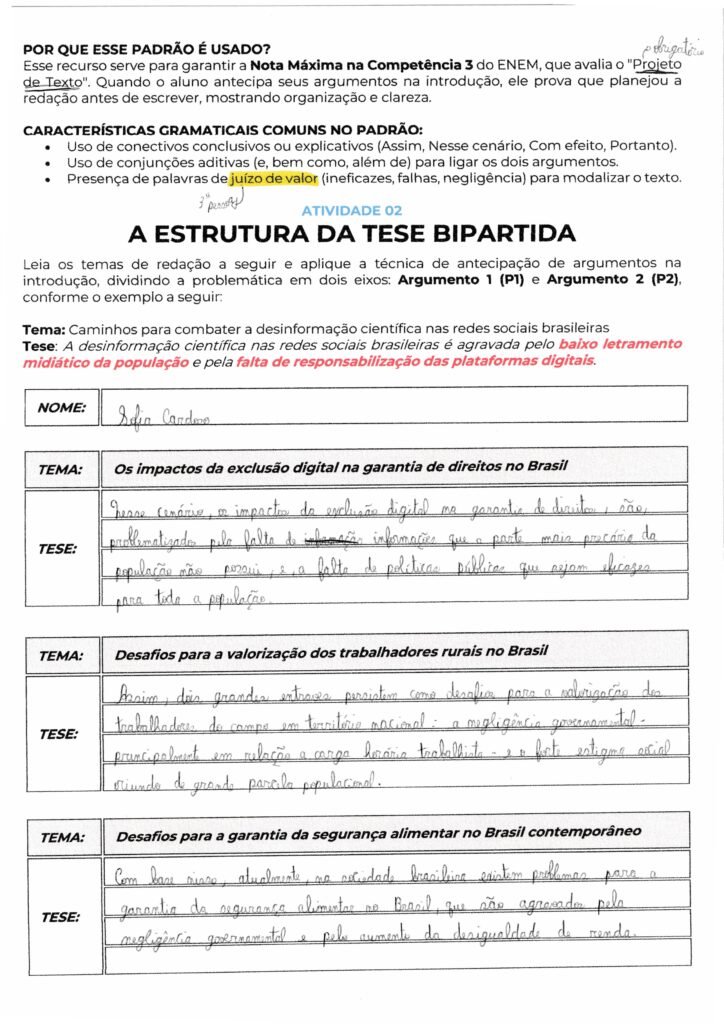 obrigatório
POR QUE ESSE PADRÃO É USADO?
Esse recurso serve para garantir a Nota Máxima na Competência 3 do ENEM, que avalia o "Projeto
de Texto". Quando o aluno antecipa seus argumentos na introdução, ele prova que planejou a
redação antes de escrever, mostrando organização e clareza.
CARACTERÍSTICAS GRAMATICAIS COMUNS NO PADRÃO:
• Uso de conectivos conclusivos ou explicativos (Assim, Nesse cenário, Com efeito, Portanto).
• Uso de conjunções aditivas (e, bem como, além de) para ligar os dois argumentos.
• Presença de palavras de juízo de valor (ineficazes, falhas, negligência) para modalizar o texto.
3ª pessoa
ATIVIDADE 02
A ESTRUTURA DA TESE BIPARTIDA
Leia os temas de redação a seguir e aplique a técnica de antecipação de argumentos na
introdução, dividindo a problemática em dois eixos: Argumento 1 (P1) e Argumento 2 (P2),
conforme o exemplo a seguir:
Tema: Caminhos para combater a desinformação científica nas redes sociais brasileiras
Tese: A desinformação científica nas redes sociais brasileiras é agravada pelo baixo letramento
midiático da população e pela falta de responsabilização das plataformas digitais.
NOME: Sofia Cardoso
TEMA: Os impactos da exclusão digital na garantia de direitos no Brasil
TESE:
Nesse cenário, os impactos da exclusão digital na garantia de direitos, são,
problematizados pela falta de informações que a parte mais precária da
população não possui, e, a falta de políticas públicas que sejam eficazes
para toda a população.
TEMA: Desafios para a valorização dos trabalhadores rurais no Brasil
TESE:
Assim, dois grandes entraves persistem como desafios para a valorização dos
trabalhadores do campo em território nacional: a negligência governamental -
principalmente em relação a carga horária trabalhista - e o forte estigma social
oriundo de grande parcela populacional.
TEMA: Desafios para a garantia da segurança alimentar no Brasil contemporâneo
TESE:
Com base nisso, atualmente, na sociedade brasileira existem problemas para a
garantia da segurança alimentar no Brasil, que são agravados pela
negligência governamental e pelo aumento da desigualdade de renda.